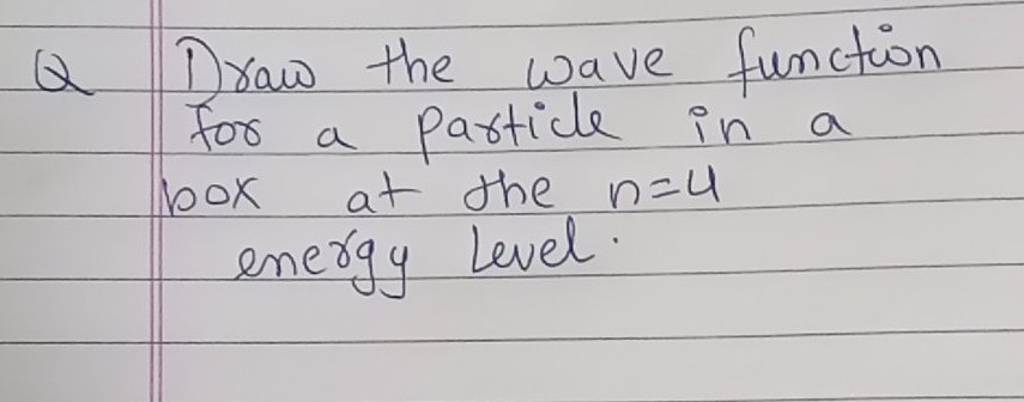 Q Draw the wave function
for a particle in a
box at the n=4
energy level.